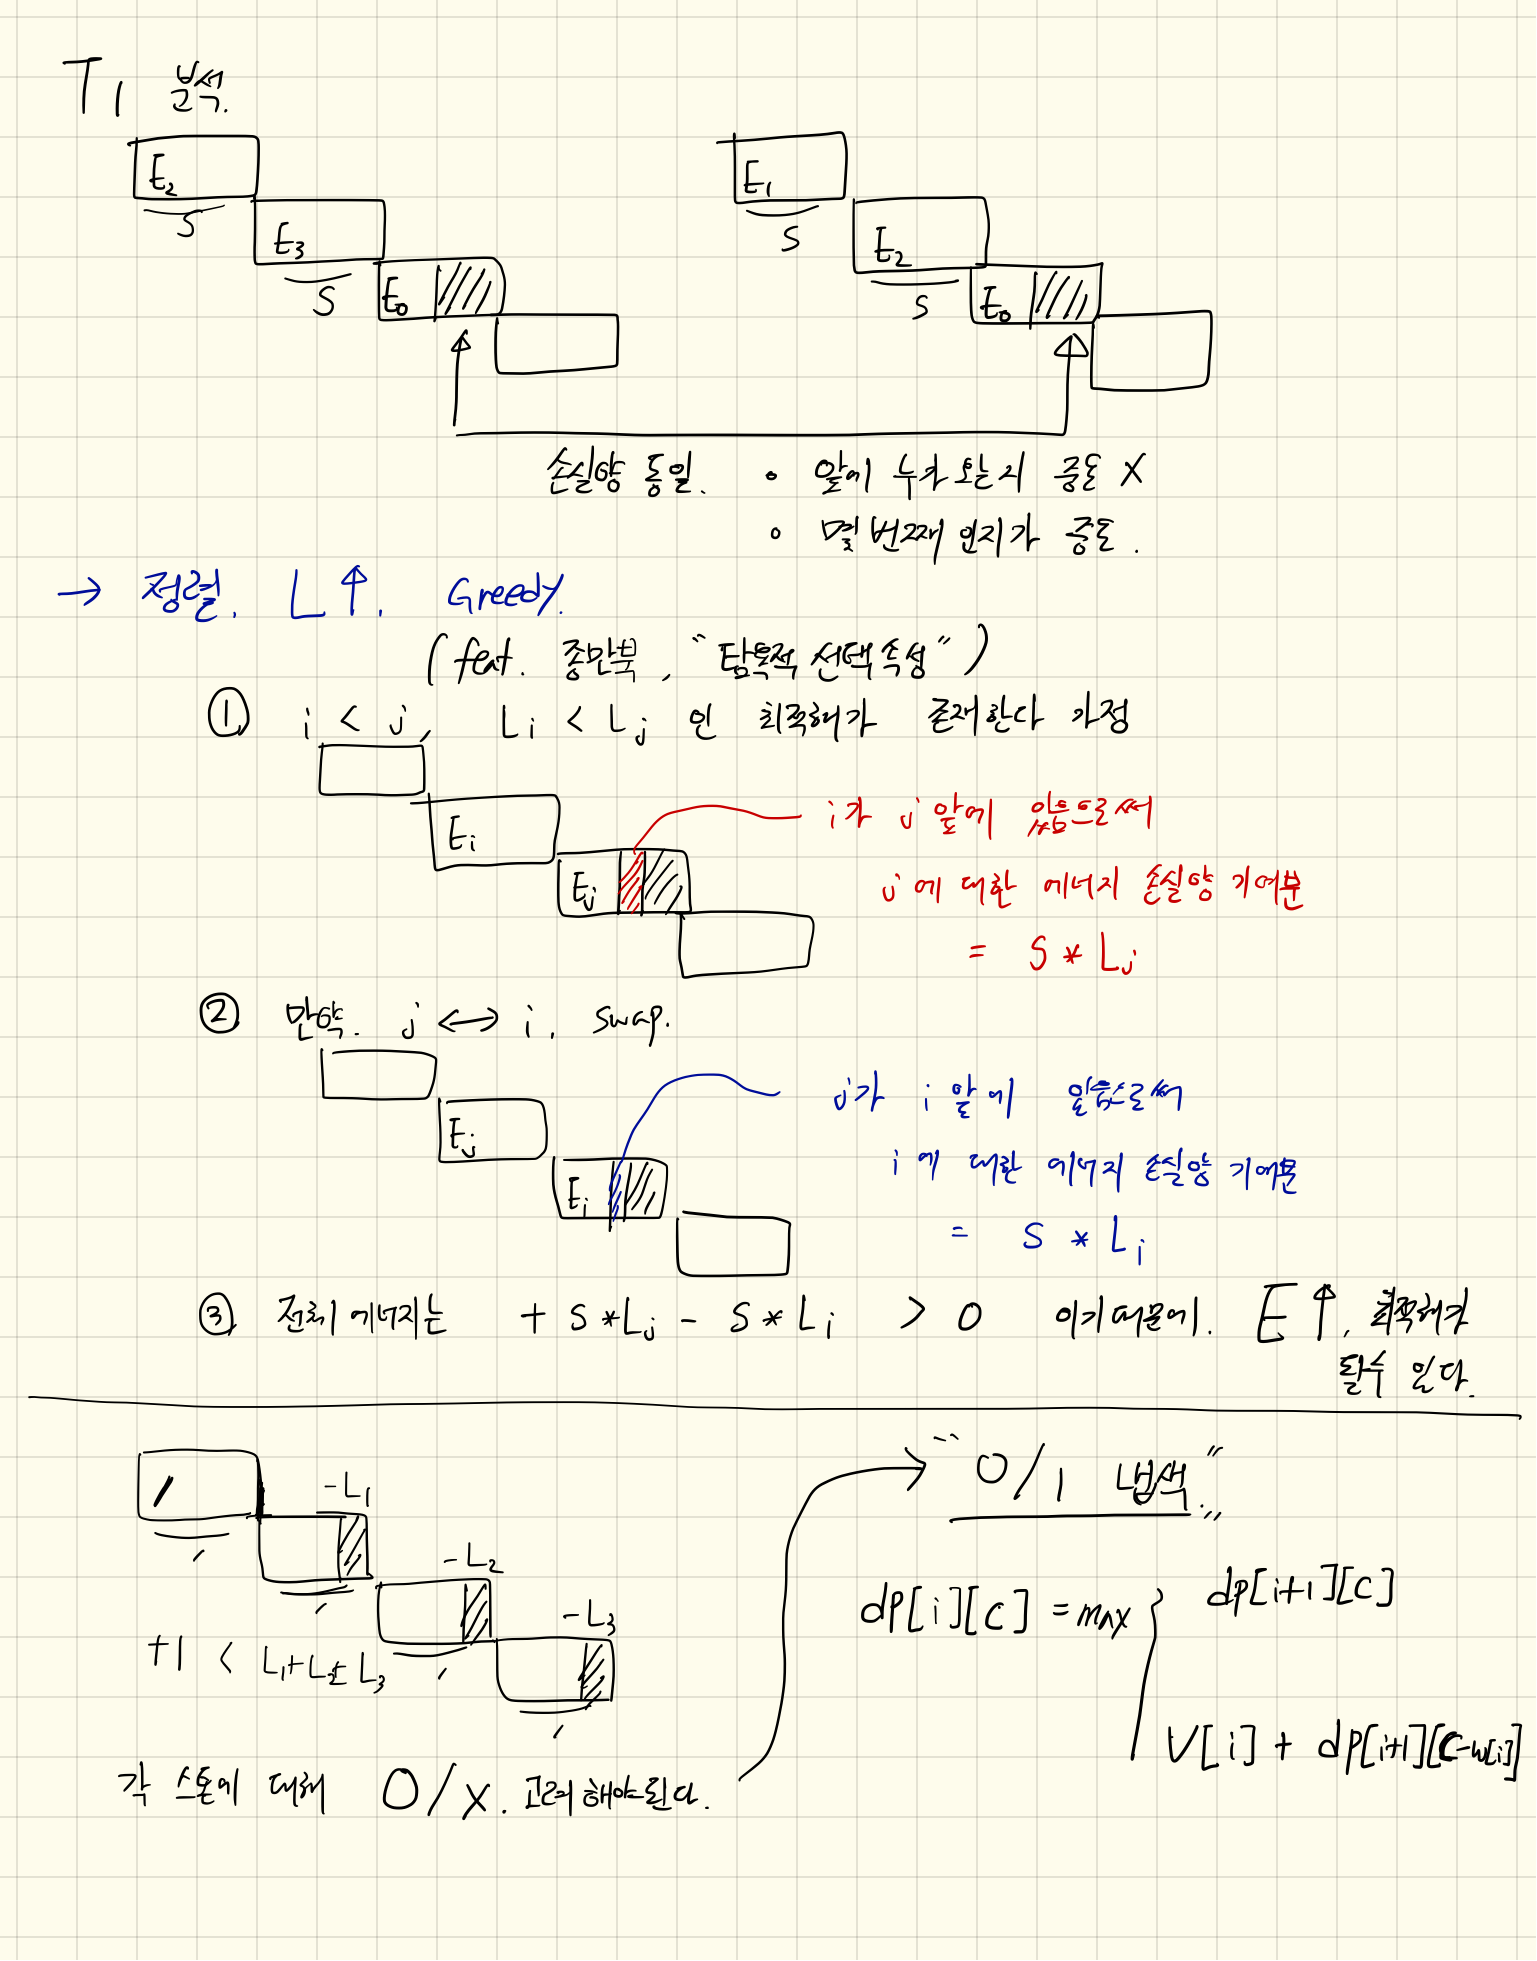 T1 분석.
E2
S
E3
S
E0
E1
S
E2
S
E0
손실양 동일. ∘ 앞에 누가 오는지 중요 X
∘ 몇 번째 인지가 중요.
→ 정렬. L↑. Greedy.
(feat. 종만북, "탐욕적 선택 속성")
① i < j, Li < Lj 인 최적해가 존재한다 가정
Ei
Ej
i가 j 앞에 있음으로써
j에 대한 에너지 손실양 기여분
= S * Lj
② 만약. j ↔ i. swap.
Ej
Ei
j가 i 앞에 있음으로써
i에 대한 에너지 손실양 기여분
= S * Li
③ 전체 에너지는 + S*Lj - S*Li > 0 이기 때문에. E↑. 최적해가
될 수 있다.
-L1
-L2
-L3
+1 < L1+L2+L3
각 스톤에 대해 O/X. 고려해야된다.
"0/1 냅색"
dp[i][c] = max
dp[i+1][c]
V[i] + dp[i+1][c-w[i]]